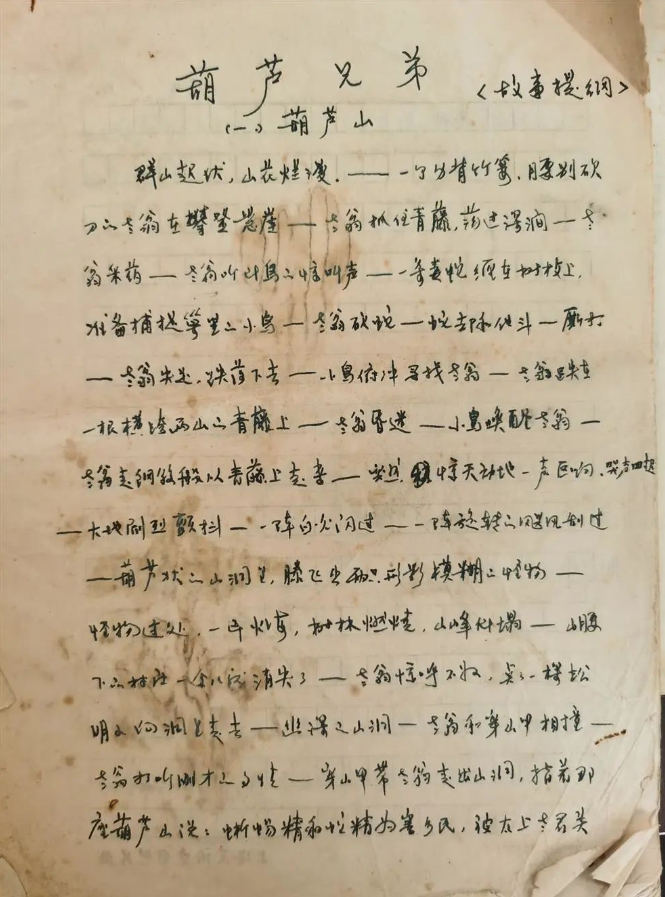 葫芦兄弟
<故事提纲>
(一) 葫芦山
群山起伏，山花烂漫。——一个身背竹篓，腰别砍
刀的老翁在攀登悬崖——老翁抓住青藤，荡过深涧——老
翁采药——老翁听到鸟的惊叫声——一条毒蛇缠在树枝上，
准备捕捉窝里的小鸟——老翁砍蛇——蛇与和他斗——厮打
——老翁失足，跌落下去——小鸟俯冲寻找老翁——老翁跌在
一根横跨两山的青藤上——老翁昏迷——小鸟唤醒老翁——
老翁走钢丝般从青藤上走来——突然，惊天动地一声巨响，
——大地剧烈颤抖——一阵白光闪过——一阵旋转的飓风刮过
——葫芦状的山洞里，腾飞出两只形影模糊的怪物——
怪物过处，一片火海，树林燃烧，山峰倒塌——山腰
下的村庄一会儿消失了——老翁惊呼不好，点了一根松
明又向洞里走去——幽深的山洞——老翁和穿山甲相撞——
老翁打听刚才之事情——穿山甲带老翁走出山洞，指着那
座葫芦山说：蜥蜴精和蛇精为害乡民，被太上老君关